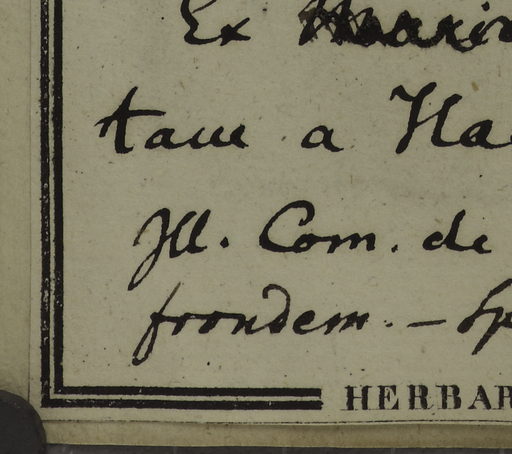 Ex
taue a Ha
Ill. Com. de
frondem. — Sp
HERBAR